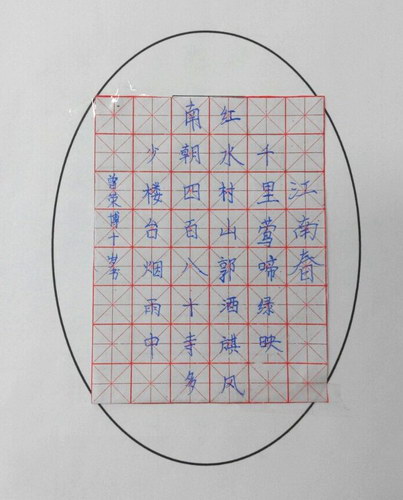 江南春
千里莺啼绿映
红水村山郭酒旗风
南朝四百八十寺多
少楼台烟雨中
曾荣博十岁书